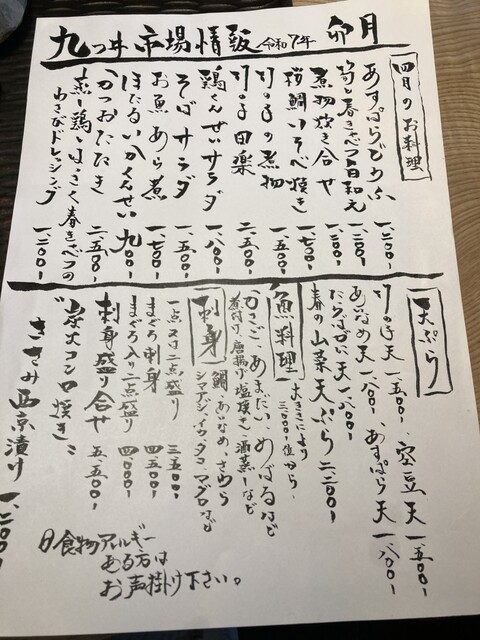 九つ井 市場情報 令和7年 卯月
四月のお料理
あすぱらどうふ 一、二〇〇-
筍と春きゃべつ旨和え 一、二〇〇-
煮物炊き合せ 一、二〇〇-
桜鯛いそべ焼き 一、七〇〇-
竹の子の煮物 一、五〇〇-
竹の子田楽 二、五〇〇-
鶏くんせいサラダ 一、八〇〇-
そばサラダ 一、五〇〇-
お魚あら煮 一、七〇〇-
ほたるいかくんせい 九〇〇-
かつおたたき 二、五〇〇-
蒸し鶏とはっさく春きゃべつの
わさびドレッシング 一、二〇〇-
天ぷら
竹の子天 一、五〇〇-、空豆天 一、五〇〇-
あいなめ天 一、八〇〇-、あすぱら天 一、八〇〇-
たらばがに天 一、八〇〇-
春の山菜天ぷら 二、二〇〇-
魚料理
大きさにより
三、〇〇〇-位から
かさご、あまだい、めばるなど
煮付け、唐揚げ、塩焼き、酒蒸しなど
刺身
鯛、あいなめ、さわら
シマアジ、イカ、タコ、マグロなど
一点又は二点盛り 三、五〇〇-
まぐろ刺身 四、五〇〇-
まぐろ入り二点盛り 四、〇〇〇-
刺身盛り合せ 五、五〇〇-
“炭火コンロ焼き”
ささみ西京漬け 一、二〇〇-
食物アレルギー
ある方は
お声掛け下さい。